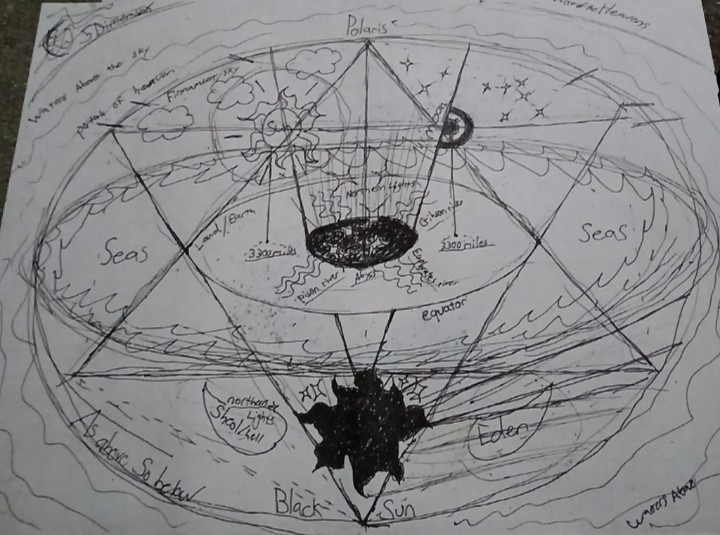 5 Dimension
Heavens
Polaris
Waters Above the sky
portal of heaven
Firmament sky
Sun
Northern Lights
Land/Earth
Gihon river
Seas
Seas
3300 miles
3300 miles
Pison river
Abyst
Euphrates river
equator
northern
Lights
Sheol/hell
Eden
As above So below
Black Sun
Waters Above